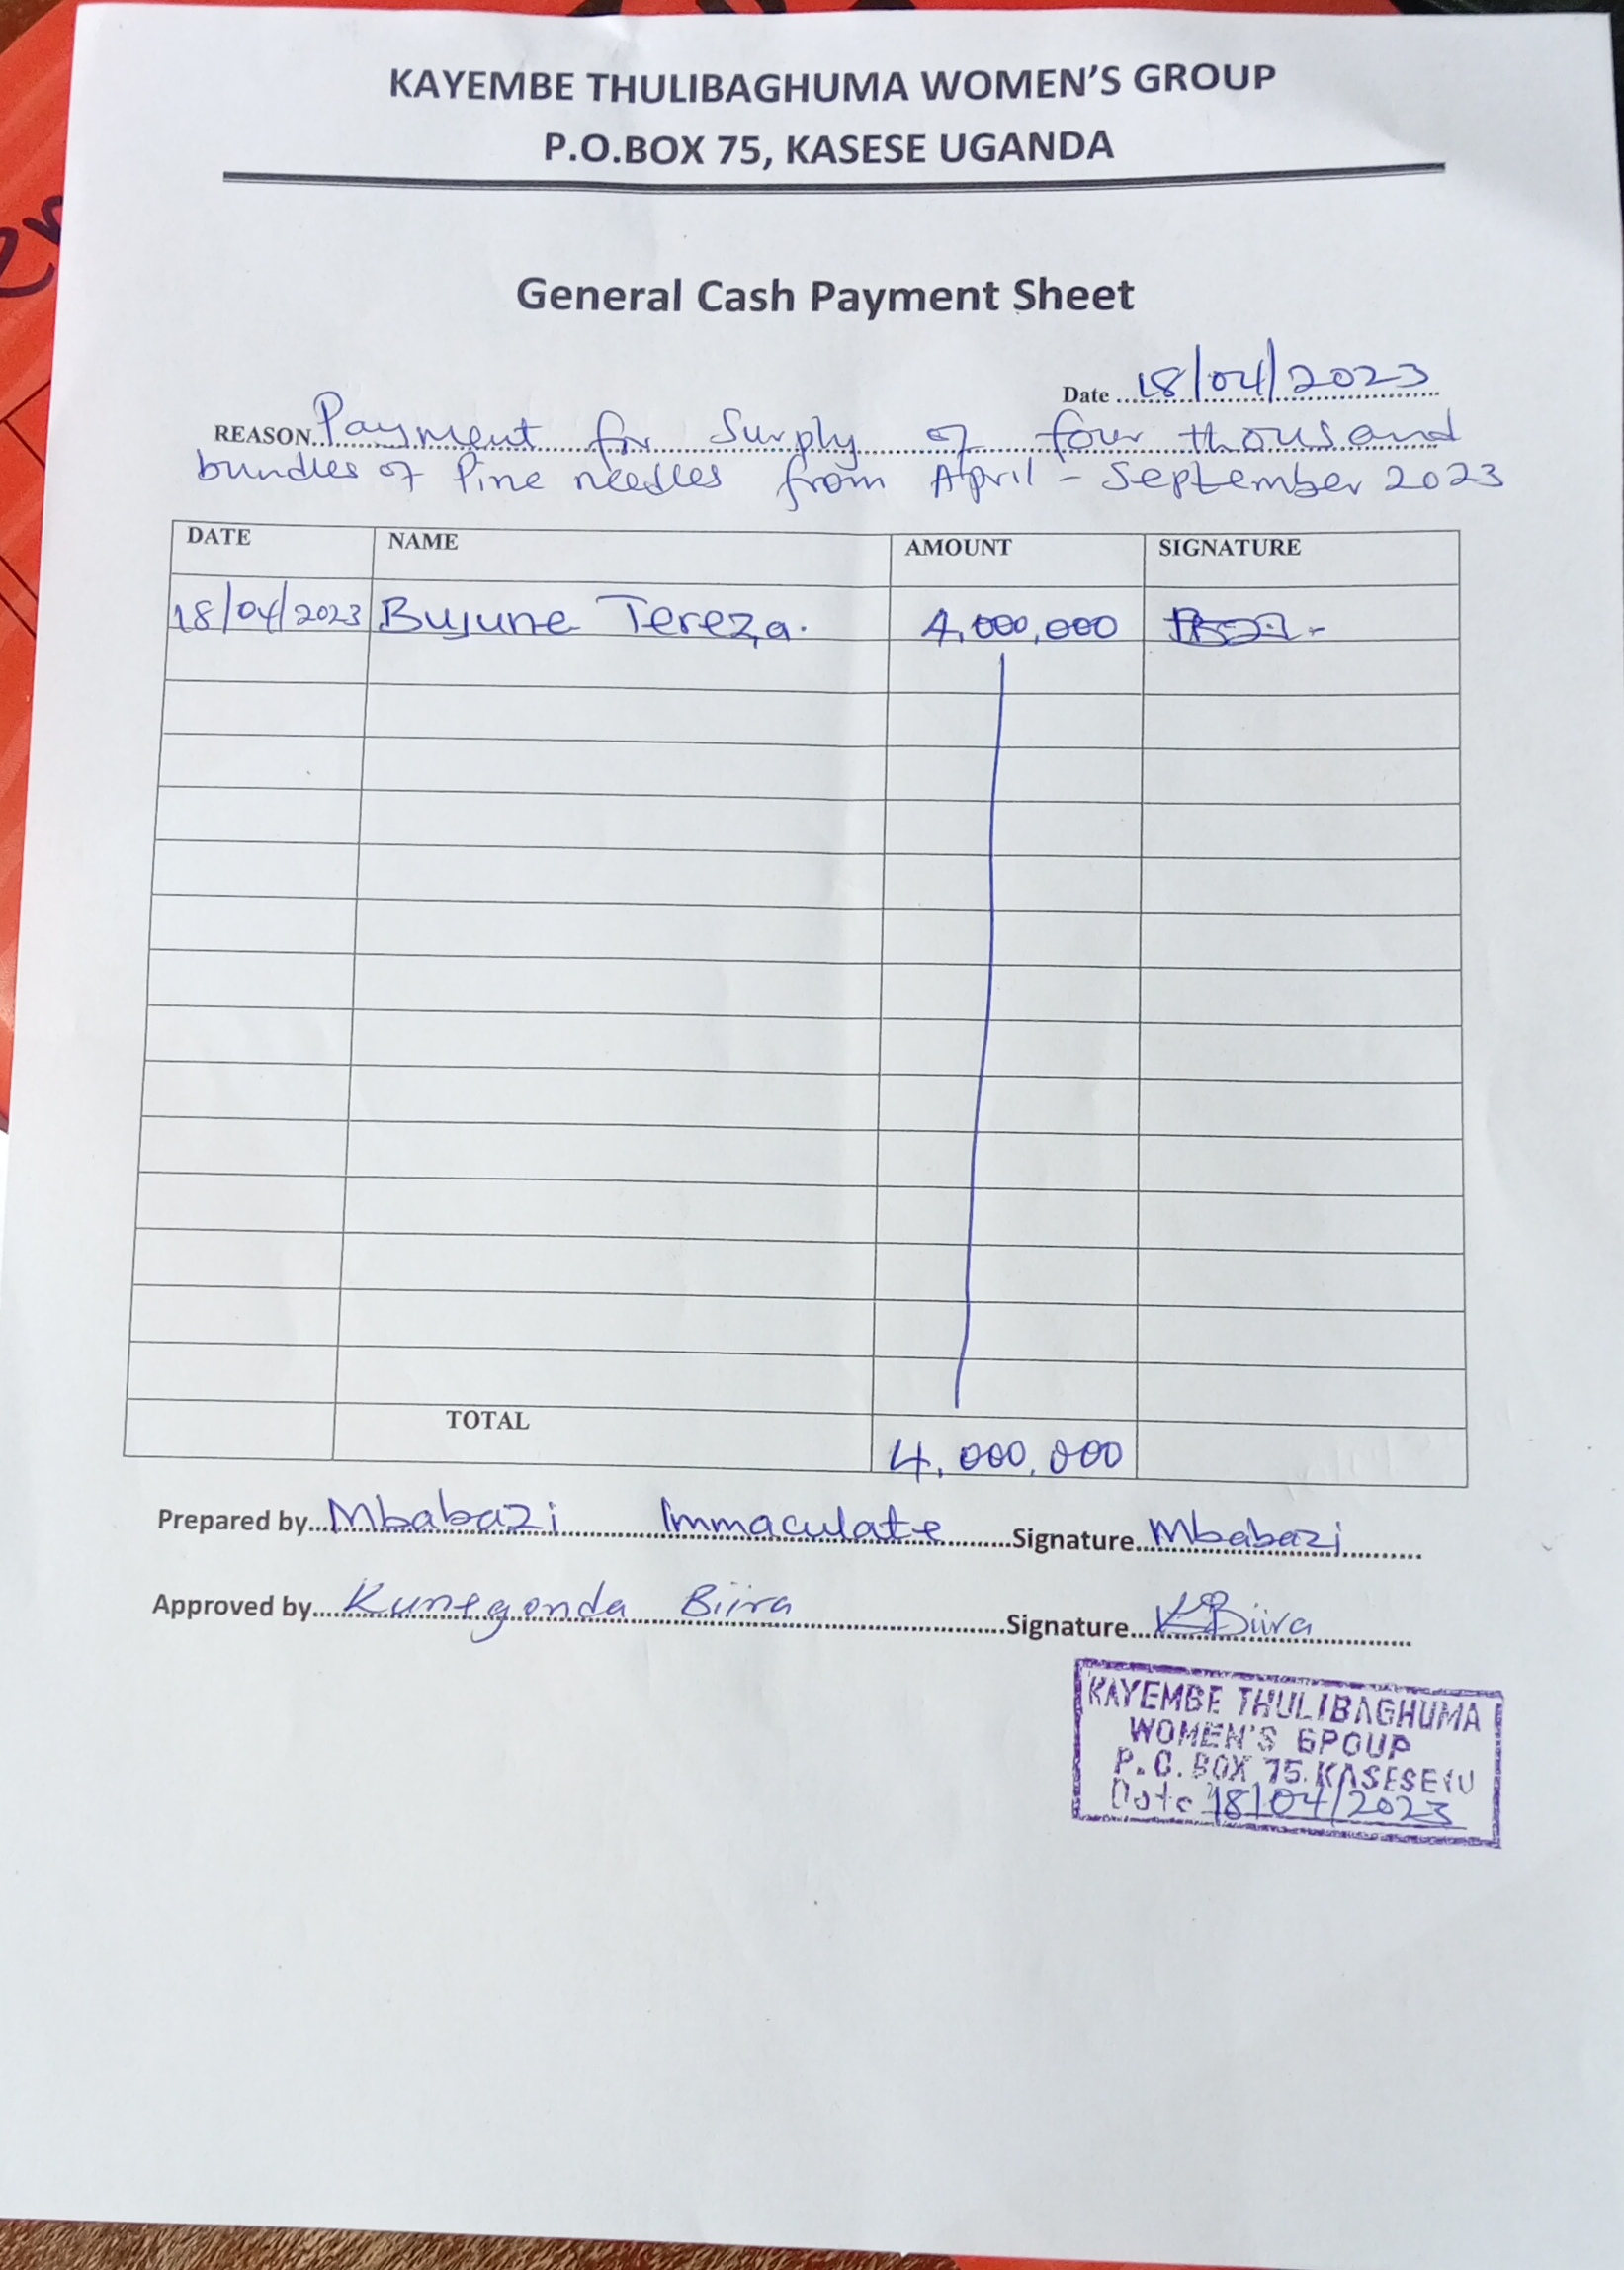 KAYEMBE THULIBAGHUMA WOMEN'S GROUP
P.O.BOX 75, KASESE UGANDA
General Cash Payment Sheet
Date 18/04/2023
REASON Payment for Surply of four thousand
bundles of Pine needles from April - September 2023
DATE NAME AMOUNT SIGNATURE
18/04/2023 Bujune Tereza. 4,000,000
TOTAL
4,000,000
Prepared by Mbabazi Immaculate Signature Mbabazi
Approved by Kunegonda Biira Signature KBiira
KAYEMBE THULIBAGHUMA
WOMEN'S GROUP
P.O. BOX 75. KASESE (U
Date 18/04/2023